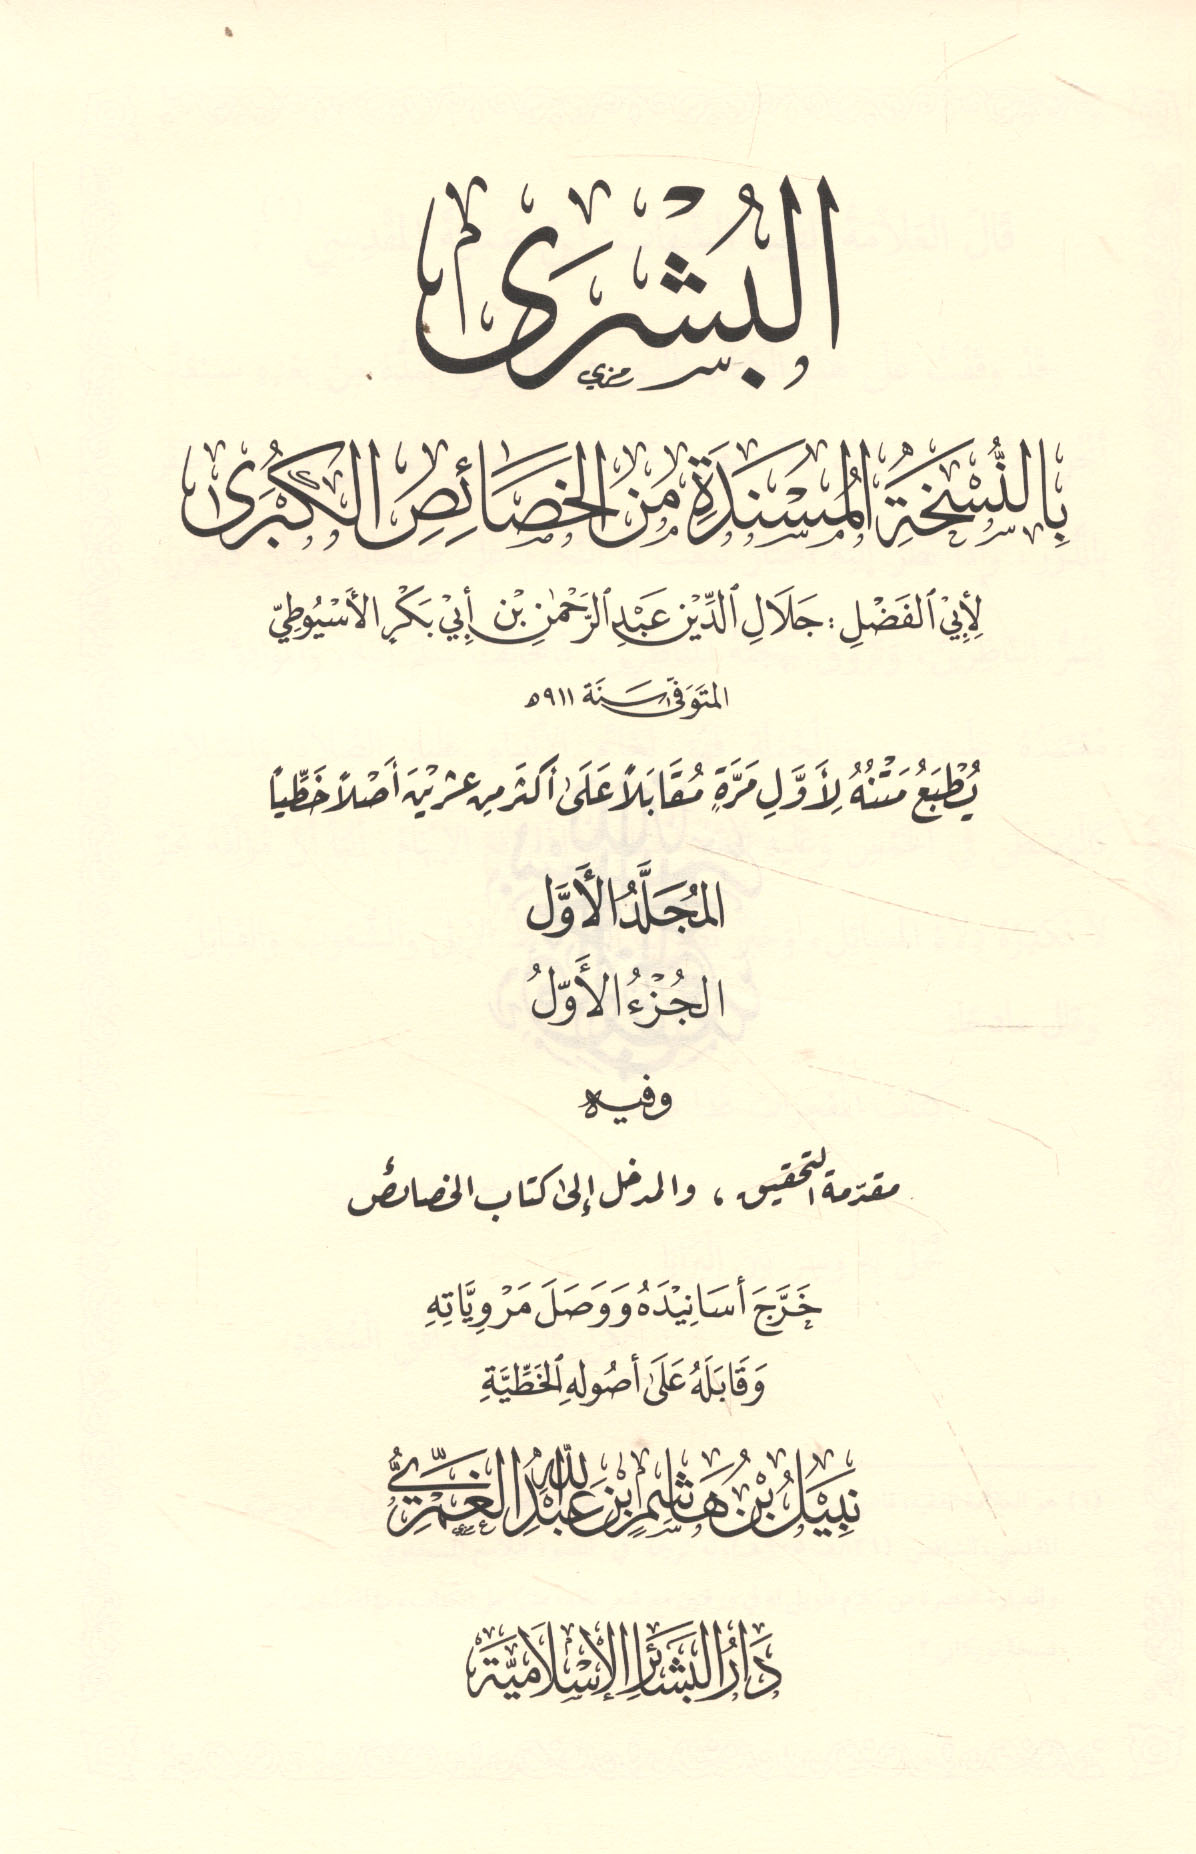 البُشْرَى
بِالنُّسْخَةِ المُسْنَدَةِ مِنَ الخَصَائِصِ الكُبْرَى
لِأَبِيْ الفَضْلِ : جَلَالِ الدِّيْنِ عَبْدِ الرَّحْمٰنِ بْنِ أَبِيْ بَكْرٍ الأَسْيُوطِيِّ
المتَوَفَّى سَنَة ٩١١ ه
يُطْبَعُ مَتْنُهُ لِأَوَّلِ مَرَّةٍ مُقَابَلاً عَلَى أكثَر مِن عِشرِيْنَ أَصْلاً خَطِّياً
المُجَلَّدُ الأَوَّل
الجُزْءُ الأَوَّلُ
وفيه
مقدّمة التحقيق ، والمدخل إلى كتاب الخصائص
خَرَّجَ أسَانِيْدَهُ وَوَصَلَ مَرْوِيَّاتِهِ
وَقَابَلَهُ عَلَى أصُولهِ الخَطِّيَّةِ
نَبِيْلُ بْنُ هَاشِمِ بْنِ عَبْدِ اللهِ الغَمْرِيُّ
دَارُ البَشَائِرِ الإِسْلَامِيَّة